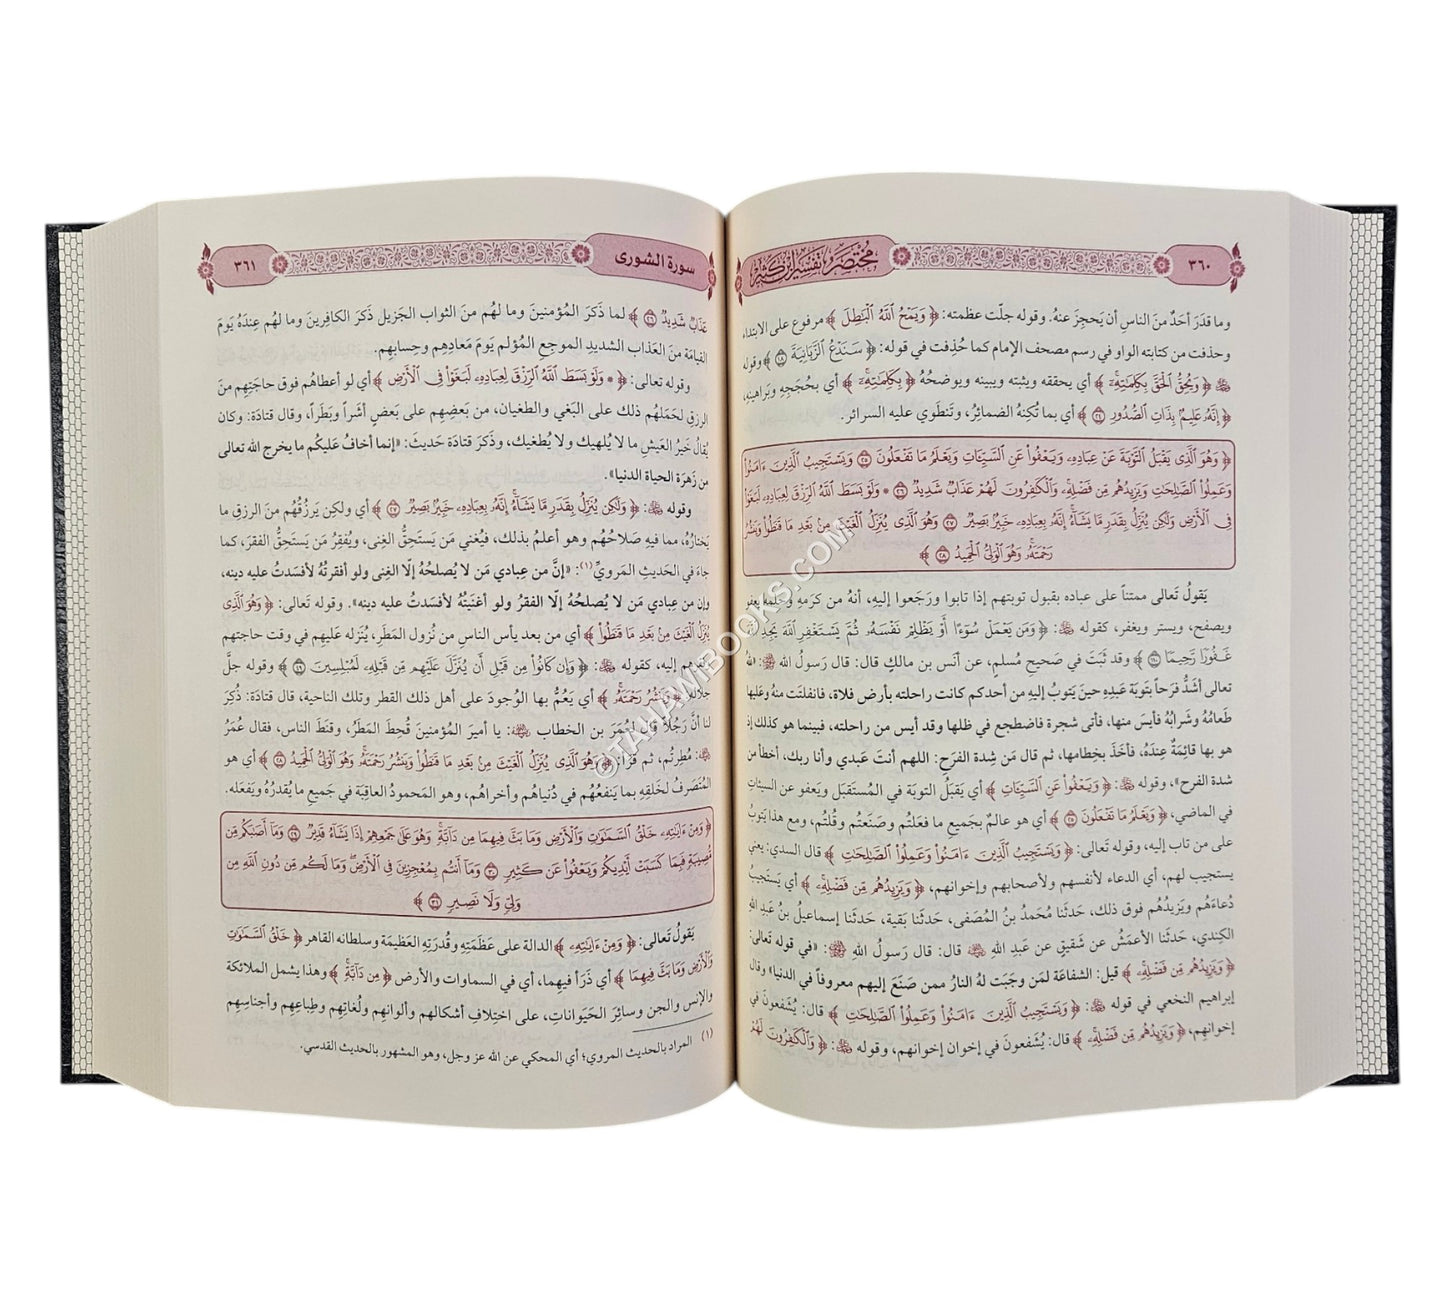 ٣٦٠
مختصر تفسير ابن كثير
وما قدَرَ أحَدٌ منَ الناس أن يَحجِزَ عنهُ. وقوله جلّت عظمته: ﴿ وَيَمْحُ ٱللَّهُ ٱلْبَٰطِلَ ﴾ مرفوع على الابتداء
وحذفت من كتابته الواو في رسم مصحف الإمام كما حُذِفت في قوله: ﴿ سَنَدْعُ ٱلزَّبَانِيَةَ ﴾ وقوله
ﷻ ﴿ وَيُحِقُّ ٱلْحَقَّ بِكَلِمَٰتِهِۦٓ ﴾ أي يحققه ويثبته ويبينه ويوضحُهُ ﴿ بِكَلِمَٰتِهِۦٓ ﴾ أي بحُجَجِهِ وبَراهينِهِ،
﴿ إِنَّهُۥ عَلِيمٌۢ بِذَاتِ ٱلصُّدُورِ ٢٤ ﴾ أي بما تُكِنهُ الضمائرُ، وتَنطَوي عليه السرائر.
﴿ وَهُوَ ٱلَّذِى يَقْبَلُ ٱلتَّوْبَةَ عَنْ عِبَادِهِۦ وَيَعْفُوا۟ عَنِ ٱلسَّيِّـَٔاتِ وَيَعْلَمُ مَا تَفْعَلُونَ ٢٥ وَيَسْتَجِيبُ ٱلَّذِينَ ءَامَنُوا۟
وَعَمِلُوا۟ ٱلصَّٰلِحَٰتِ وَيَزِيدُهُم مِّن فَضْلِهِۦ ۚ وَٱلْكَٰفِرُونَ لَهُمْ عَذَابٌ شَدِيدٌ ٢٦ * وَلَوْ بَسَطَ ٱللَّهُ ٱلرِّزْقَ لِعِبَادِهِۦ لَبَغَوْا۟
فِى ٱلْأَرْضِ وَلَٰكِن يُنَزِّلُ بِقَدَرٍ مَّا يَشَآءُ ۚ إِنَّهُۥ بِعِبَادِهِۦ خَبِيرٌۢ بَصِيرٌ ٢٧ وَهُوَ ٱلَّذِى يُنَزِّلُ ٱلْغَيْثَ مِنۢ بَعْدِ مَا قَنَطُوا۟ وَيَنشُرُ
رَحْمَتَهُۥ ۚ وَهُوَ ٱلْوَلِىُّ ٱلْحَمِيدُ ٢٨ ﴾
يَقولُ تَعالى ممتناً على عباده بقبول توبتهم إذا تابوا ورَجَعوا إليهِ، أنهُ من كرَمهِ وحلمه يعفو
ويصفح، ويستر ويغفر، كقوله ﷻ: ﴿ وَمَن يَعْمَلْ سُوٓءًا أَوْ يَظْلِمْ نَفْسَهُۥ ثُمَّ يَسْتَغْفِرِ ٱللَّهَ يَجِدِ ٱللَّهَ
غَفُورًا رَّحِيمًا ﴾ وقد ثبَتَ في صَحيح مُسلمٍ، عن أنَس بن مالكٍ قال: قال رَسولُ الله ﷺ: لله
تعالى أشَدُّ فرَحاً بتَوبَة عَبدِهِ حينَ يَتوبُ إليهِ من أحدكم كانت راحلته بأرض فلاة، فانفلتَتْ منهُ وعَليها
طَعامُهُ وشَرابُهُ فأيسَ منها، فأتى شجرة فاضطجع في ظلها وقد أيس من راحلته، فبينما هو كذلك إذ
هو بها قائِمَةٌ عِندَهُ، فأخَذَ بخِطامِها، ثم قال مَن شِدة الفرَح: اللهم أنتَ عَبدي وأنا ربك، أخطأ من
شدة الفرح»، وقوله ﷻ: ﴿ وَيَعْفُوا۟ عَنِ ٱلسَّيِّـَٔاتِ ﴾ أي يَقبَلُ التوبةَ في المُستَقبَل ويَعفو عن السيئاتِ
في الماضي، ﴿ وَيَعْلَمُ مَا تَفْعَلُونَ ٢٥ ﴾ أي هو عالمٌ بجَميع ما فعَلتُم وصَنَعتُم وقُلتُم، ومع هذا يَتوبُ
على من تاب إليه، وقوله تعالى: ﴿ وَيَسْتَجِيبُ ٱلَّذِينَ ءَامَنُوا۟ وَعَمِلُوا۟ ٱلصَّٰلِحَٰتِ ﴾ قال السدي: يعني
يستجيب لهم، أي الدعاء لأنفسهم ولأصحابهم وإخوانهم، ﴿ وَيَزِيدُهُم مِّن فَضْلِهِۦ ﴾ أي يَستَجيبُ
دُعاءَهُم ويَزيدُهُم فوق ذلك، حَدثَنا مُحَمدُ بنُ المُصَفى، حَدثَنا بَقية، حَدثَنا إسماعيلُ بنُ عَبدِ اللهِ
الكِندِي، حَدثَنا الأعمَشُ عن شَقيقٍ عن عَبدِ الله ﷺ قال: قال رَسولُ اللهِ ﷺ: «في قوله تَعالى:
﴿ وَيَزِيدُهُم مِّن فَضْلِهِۦ ﴾ قيل: الشفاعَة لمَن وجَبَت لهُ النارُ ممن صَنَعَ إليهم معروفاً في الدنيا» وقال
إبراهيم النخعي في قوله ﷻ: ﴿ وَيَسْتَجِيبُ ٱلَّذِينَ ءَامَنُوا۟ وَعَمِلُوا۟ ٱلصَّٰلِحَٰتِ ﴾ قال: يُشَفعونَ في
إخوانهِم، ﴿ وَيَزِيدُهُم مِّن فَضْلِهِۦ ﴾ قال: يُشَفعونَ في إخوان إخوانهم، وقوله ﷻ: ﴿ وَٱلْكَٰفِرُونَ لَهُمْ
سورة الشورى
٣٦١
عَذَابٌ شَدِيدٌ ٢٦ ﴾ لما ذَكَرَ المُؤمنينَ وما لهُم منَ الثواب الجَزيل ذَكَرَ الكافِرينَ وما لهم عِندَهُ يَومَ
القيامَة منَ العَذاب الشديدِ الموجعِ المُؤلم يَومَ مَعادِهِم وحِسابِهِم.
وقوله تعالى: ﴿ * وَلَوْ بَسَطَ ٱللَّهُ ٱلرِّزْقَ لِعِبَادِهِۦ لَبَغَوْا۟ فِى ٱلْأَرْضِ ﴾ أي لو أعطاهُم فوق حاجَتِهِم منَ
الرزق لحَمَلهُم ذلك على البَغي والطغيان، من بَعضِهِم على بَعضٍ أشَراً وبَطَراً، وقال قتادَة: وكان
يُقالُ خَيرُ العَيش ما لا يُلهيك ولا يُطغيك، وذَكَرَ قتادَة حَديثَ: «إنما أخافُ عَليكُم ما يخرج الله تعالى
من زَهرَة الحياة الدنيا».
وقوله ﷻ: ﴿ وَلَٰكِن يُنَزِّلُ بِقَدَرٍ مَّا يَشَآءُ ۚ إِنَّهُۥ بِعِبَادِهِۦ خَبِيرٌۢ بَصِيرٌ ٢٧ ﴾ أي ولكن يَرزُقُهُم منَ الرزق ما
يَختارُهُ، مما فيهِ صَلاحُهُم وهو أعلمُ بذلك، فيُغني مَن يَستَحِقُّ الغِنى، ويُفقِرُ مَن يَستَحِقُّ الفقرَ، كما
جاءَ في الحَديثِ المَرويِّ(١): «إنَّ من عِبادي مَن لا يُصلحُهُ إلّا الغِنى ولو أفقرتُهُ لأفسَدتُ عليه دينه،
وإن من عِبادي مَن لا يُصلحُهُ إلّا الفقرُ ولو أغنَيتُهُ لأفسَدتُ عليه دينه». وقوله تَعالى: ﴿ وَهُوَ ٱلَّذِى
يُنَزِّلُ ٱلْغَيْثَ مِنۢ بَعْدِ مَا قَنَطُوا۟ ﴾ أي من بعد يأس الناسِ من نُزول المَطَر، يُنَزله عَليهِم في وقت حاجتهم
وفقرهم إليه، كقوله ﷻ: ﴿ وَإِن كَانُوا۟ مِن قَبْلِ أَن يُنَزَّلَ عَلَيْهِم مِّن قَبْلِهِۦ لَمُبْلِسِينَ ﴾ وقوله جلَّ
جلاله: ﴿ وَيَنشُرُ رَحْمَتَهُۥ ﴾ أي يَعُمُّ بها الوُجودَ على أهل ذلك القطر وتلك الناحية، قال قتادَة: ذُكِرَ
لنا أنَّ رَجُلاً قال لعُمَرَ بن الخطاب ﷺ: يا أميرَ المُؤمنينَ قُحِطَ المَطَرُ، وقنَطَ الناس، فقال عُمَرُ
مُطِرتُم، ثم قرَأ: ﴿ وَهُوَ ٱلَّذِى يُنَزِّلُ ٱلْغَيْثَ مِنۢ بَعْدِ مَا قَنَطُوا۟ وَيَنشُرُ رَحْمَتَهُۥ ۚ وَهُوَ ٱلْوَلِىُّ ٱلْحَمِيدُ ٢٨ ﴾ أي هو
المُتَصَرفُ لخَلقِهِ بما يَنفعُهُم في دُنياهُم وأخراهُم، وهو المَحمودُ العاقِبَة في جَميع ما يُقدرُهُ ويَفعَله.
﴿ وَمِنْ ءَايَٰتِهِۦ خَلْقُ ٱلسَّمَٰوَٰتِ وَٱلْأَرْضِ وَمَا بَثَّ فِيهِمَا مِن دَآبَّةٍ ۚ وَهُوَ عَلَىٰ جَمْعِهِمْ إِذَا يَشَآءُ قَدِيرٌ ٢٩ وَمَآ أَصَٰبَكُم مِّن
مُّصِيبَةٍ فَبِمَا كَسَبَتْ أَيْدِيكُمْ وَيَعْفُوا۟ عَن كَثِيرٍ ٣٠ وَمَآ أَنتُم بِمُعْجِزِينَ فِى ٱلْأَرْضِ ۖ وَمَا لَكُم مِّن دُونِ ٱللَّهِ مِن
وَلِىٍّ وَلَا نَصِيرٍ ٣١ ﴾
يَقولُ تَعالى: ﴿ وَمِنْ ءَايَٰتِهِۦ ﴾ الدالة على عَظَمَتِهِ وقُدرَتِهِ العَظيمَة وسلطانه القاهر ﴿ خَلْقُ ٱلسَّمَٰوَٰتِ
وَٱلْأَرْضِ وَمَا بَثَّ فِيهِمَا ﴾ أي ذَرَأ فيهِما، أي في السماوات والأرض ﴿ مِن دَآبَّةٍ ﴾ وهذا يشمل الملائكة
والإنس والجن وسائِرَ الحَيَوانات، على اختِلافِ أشكالهِم وألوانهِم ولُغاتِهِم وطِباعِهِم وأجناسِهِم
(١) المراد بالحديث المروي؛ أي المحكي عن الله عز وجل، وهو المشهور بالحديث القدسي.
©TAHAMIBOOKS.COM